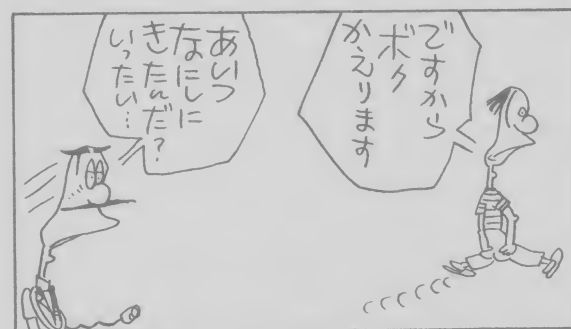 ですから
ボク
かえります
あいつ
なにしに
きたんだ?
いったい…